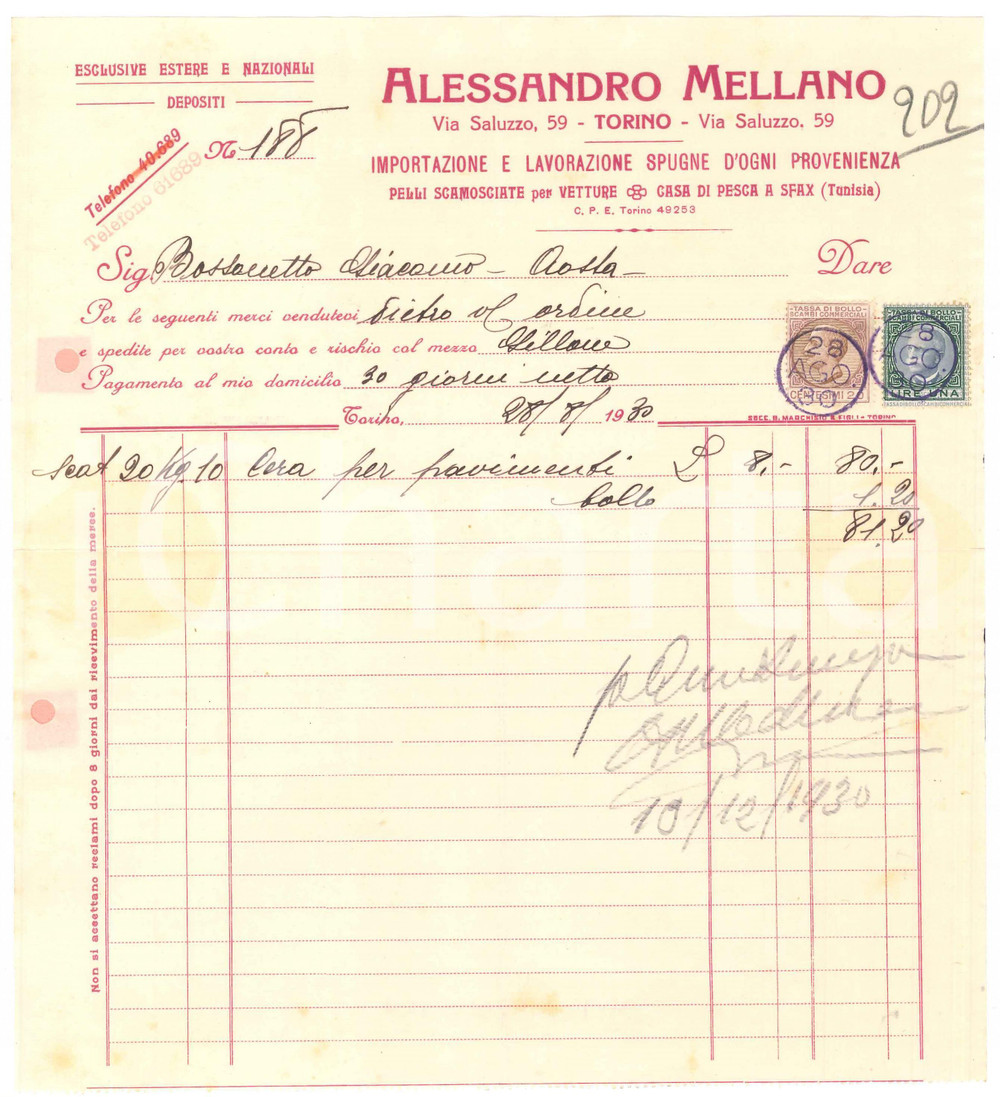 ESCLUSIVE ESTERE E NAZIONALI
DEPOSITI
Telefono 40.689
Telefono 61689
No 188
ALESSANDRO MELLANO
Via Saluzzo, 59 - TORINO - Via Saluzzo. 59
202
IMPORTAZIONE E LAVORAZIONE SPUGNE D'OGNI PROVENIENZA
PELLI SCAMOSCIATE per VETTURE CASA DI PESCA A SFAX (Tunisia)
C. P. E. Torino 49253
Sig. Bossonetto Giacomo - Aosta - Dare
Per le seguenti merci vendutevi dietro vs ordine
e spedite per vostro conto e rischio col mezzo Gillone
Pagamento al mio domicilio 30 giorni netto
Torino, 28/8/1930
TASSA DI BOLLO
SCAMBI COMMERCIALI
28
AGO.
30
CENTESIMI 20
TASSA DI BOLLO
SCAMBI COMMERCIALI
28
AGO.
30
LIRE UNA
ESCL. B. MARCHISIO & FIGLI - TORINO
Scat 20 Kg 10 Cera per pavimenti L 8,- 80,-
bollo 1.20
81.20
Non si accettano reclami dopo 8 giorni dal ricevimento della merce.
10/12/1930